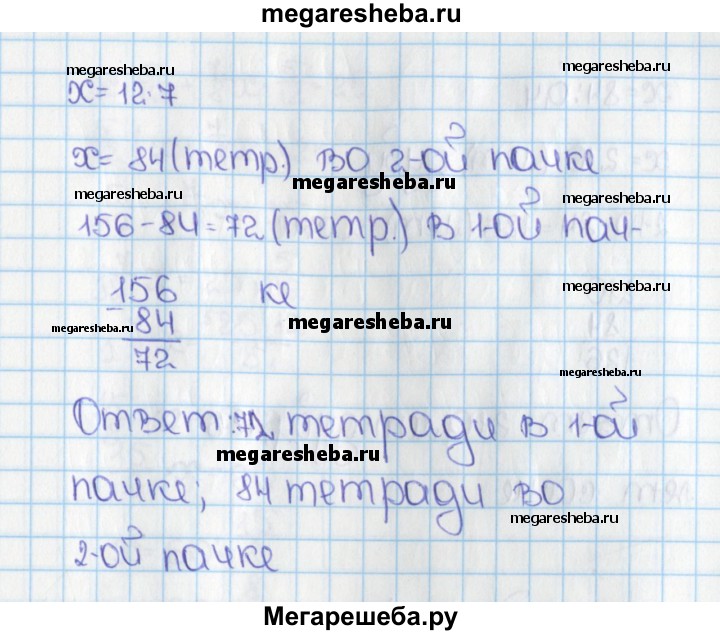 megaresheba.ru
megaresheba.ru
megaresheba.ru
x = 12·7
x = 84 (тетр.) во 2-ой пачке
megaresheba.ru
megaresheba.ru
156 - 84 = 72 (тетр.) в 1-ой пач-
megaresheba.ru
156 ке
megaresheba.ru
megaresheba.ru
- 84
72
megaresheba.ru
Ответ: 72 тетради в 1-ой
megaresheba.ru
пачке; 84 тетради во
megaresheba.ru
2-ой пачке
Мегарешеба.ру